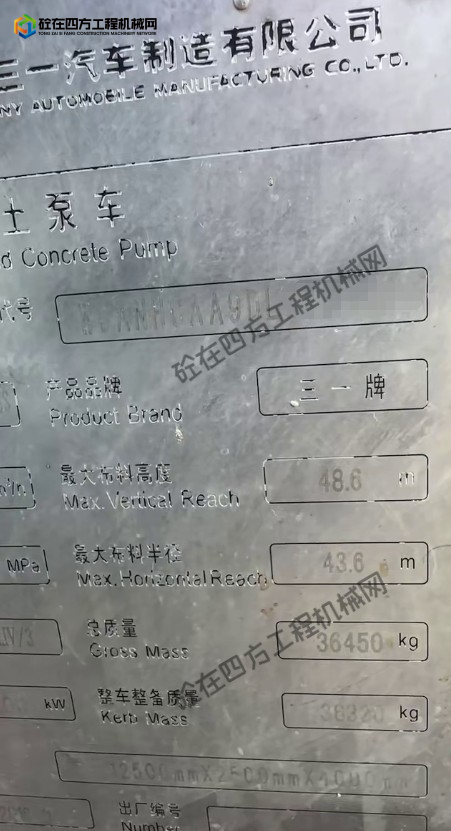 砼在四方工程机械网
TONG ZAI SI FANG CONSTRUCTION MACHINERY NETWORK
三一汽车制造有限公司
NY AUTOMOBILE MANUFACTURING CO.,LTD.
土泵车
d Concrete Pump
代号
砼在四方工程机械网
产品品牌 三一牌
Product Brand
最大布料高度 48.6 m
Max.Vertical Reach
MPa 最大布料半径 43.6 m
Max.Horizontal Reach
砼在四方工程机械网
总质量 36450 kg
Gross Mass
kW 整车整备质量 kg
Kerb Mass
出厂编号
Number